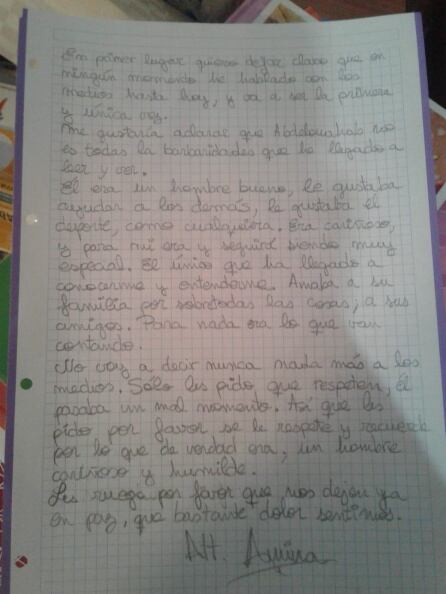 En primer lugar quiero dejar claro que en
ningún momento he hablado con los
medios hasta hoy, y va a ser la primera
y única vez.
Me gustaría aclarar que Abdelouahab no
es todas la barbaridades que he llegado a
leer y ver.
Él era un hombre bueno, le gustaba
ayudar a los demás, le gustaba el
deporte, como cualquiera. Era cariñoso,
y para mí era y seguirá siendo muy
especial. El único que ha llegado a
conocerme y entenderme. Amaba a su
familia por sobretodas las cosas; a sus
amigos. Para nada era lo que van
contando.
No voy a decir nunca nada más a los
medios. Sólo les pido que respeten, él
pasaba un mal momento. Así que les
pido por favor se le respete y recuerde
por lo que de verdad era, un hombre
cariñoso y humilde.
Les ruego por favor que nos dejen ya
en paz, que bastante dolor sentimos.
Att. Amina